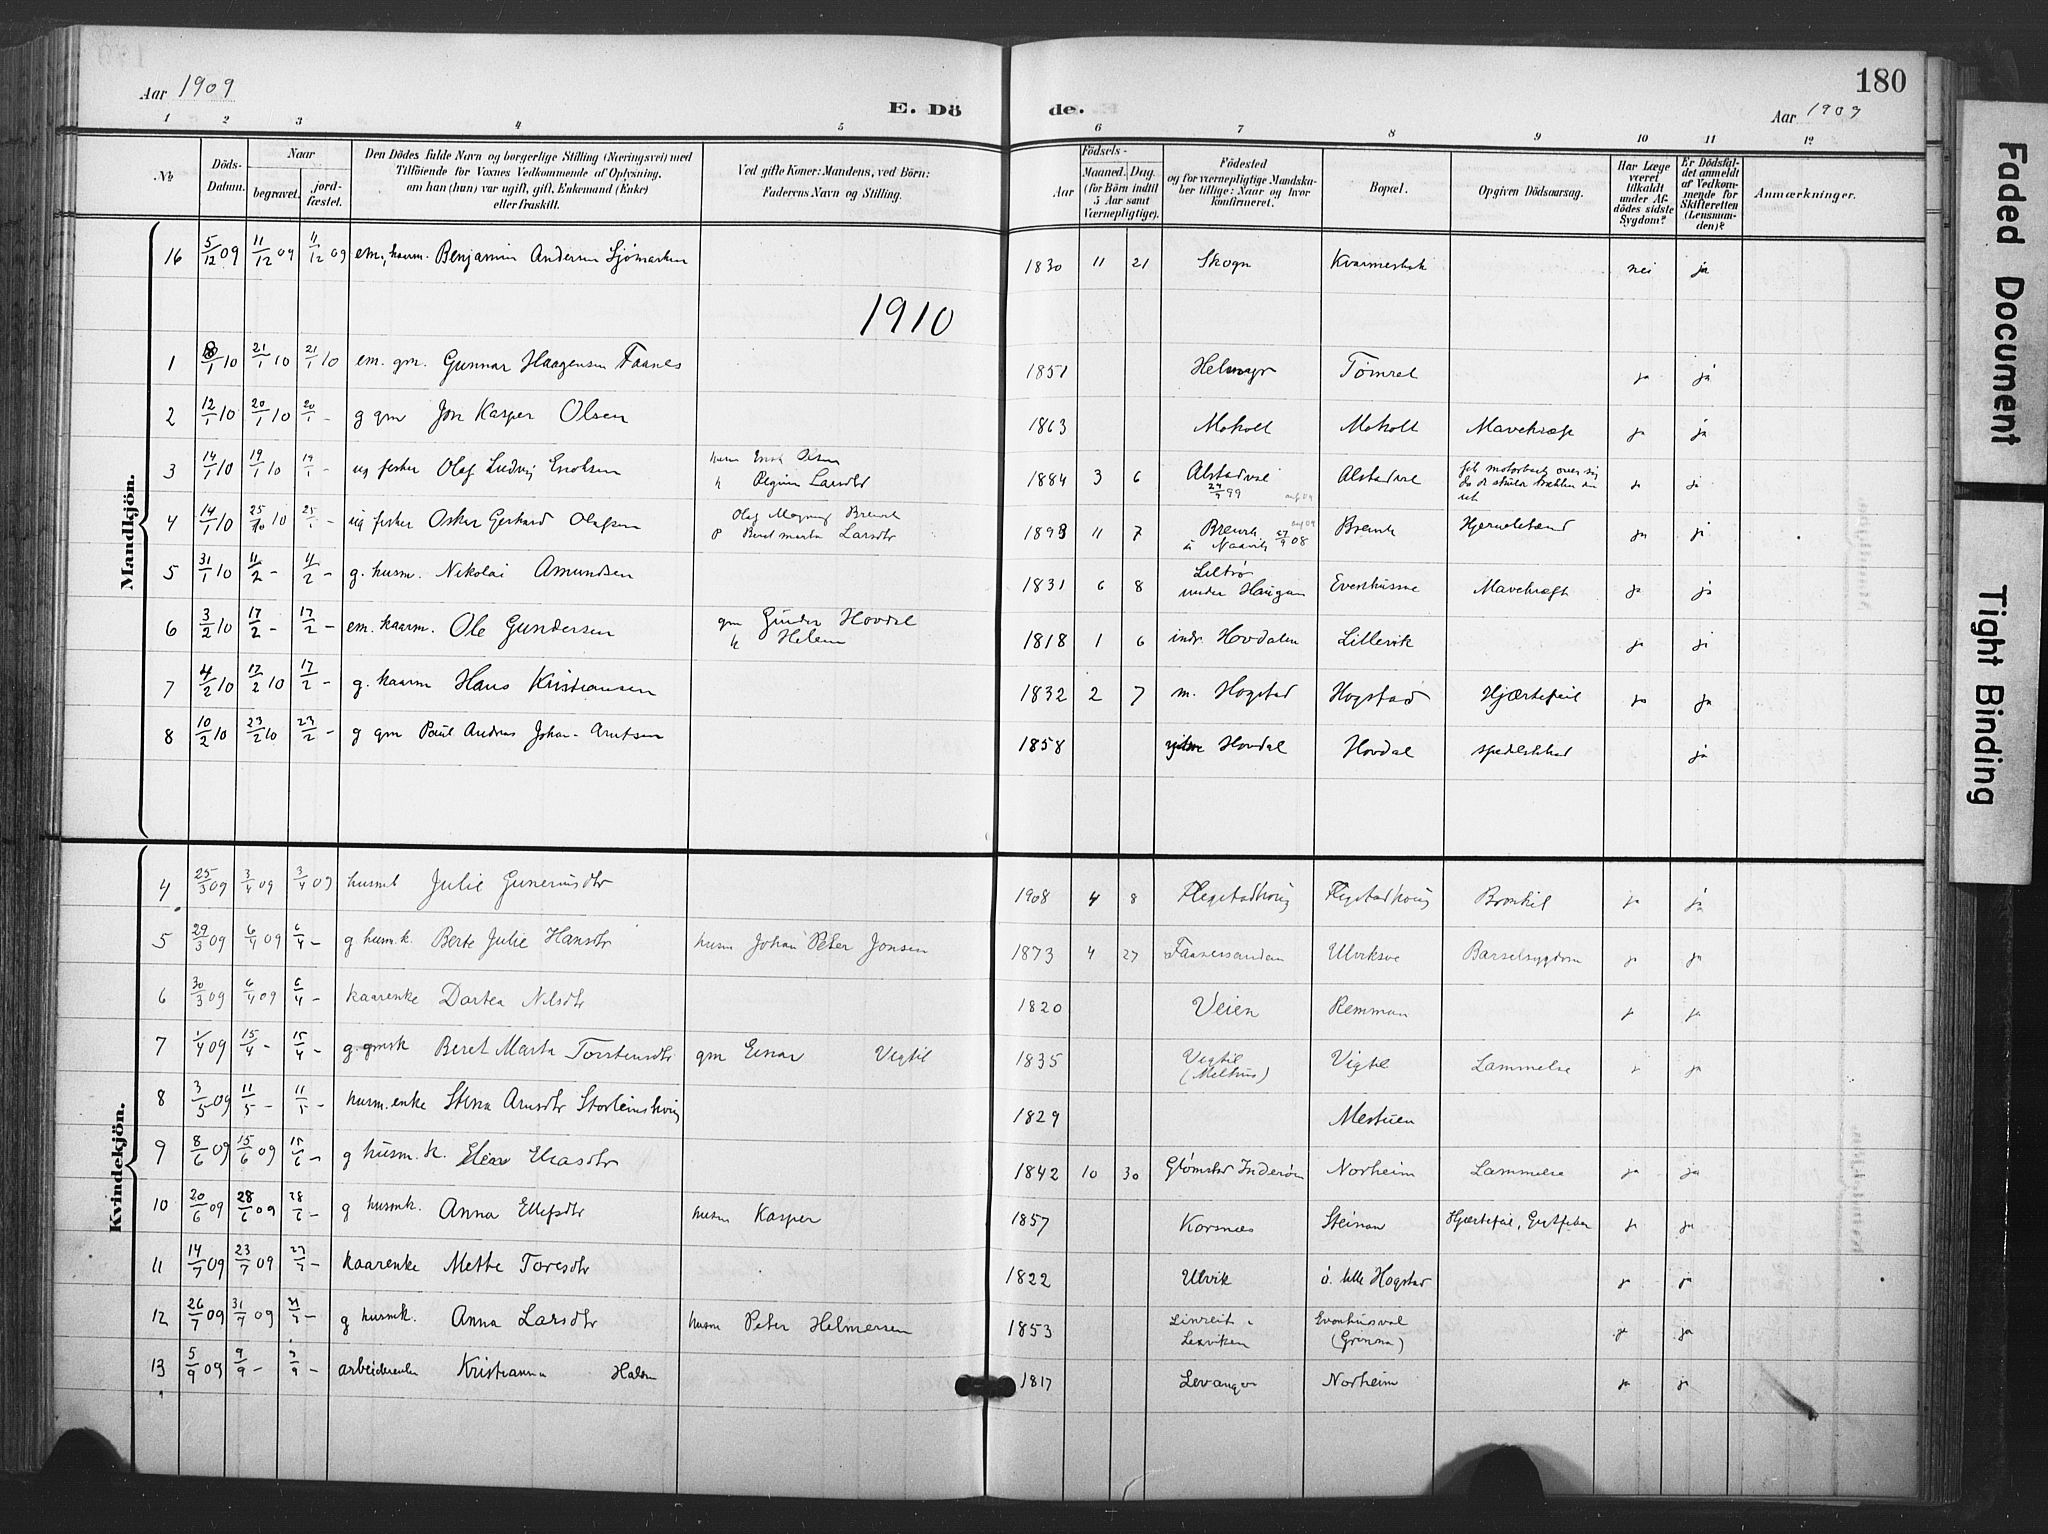 180
Aar 1909
E. Döde.
Aar 1909
1 2 3 4 5 6 7 8 9 10 11 12
№
Döds-Datum.
Naar
begravet.
jord-fæstet.
Den Dödes fulde Navn og borgerlige Stilling (Næringsvei) med
Tilföiende for Voxnes Vedkommende af Oplysning,
om han (hun) var ugift, gift, Enkemand (Enke)
eller fraskilt.
Ved gifte Koner: Mandens, ved Börn:
Faderens Navn og Stilling.
Födsels-
Aar
Maaned. Dag
(for Börn indtil
5 Aar samt
Værnepligtige).
Födested
og for værnepligtige Mandska-
ber tillige: Naar og hvor
konfirmeret.
Bopæl.
Opgiven Dödsaarsag.
Har Læge
været
tilkaldt
under Af-
dödes sidste
Sygdom?
Er Dödsfal-
det anmeldt
af Vedkom-
mende for
Skifteretten
(Lensman-
den)?
Anmærkninger.
Mandkjön.
16 5/12 09 11/12 09 11/12 09 em. kaarm. Benjamin Andersen Sjömarken 1830 11 21 Skogn nei ja
1910
1 /1 10 21/1 10 21/1 10 em. gm. Gunnar Haagensen Faanes 1851 Tömret ja ja
2 12/1 10 20/1 10 20/1 - g gm Jon Kasper Olsen 1863 Moholt Moholt Mavekræft ja ja
3 14/1 10 19/1 10 19/1 - ug fisker Olaf Ludvig Larsdtr 1884 3 6 24/9 99 ja ja
4 14/1 10 25/1 10 25/1 - ug fisker Oskar Gerhard Olafsen Beret Marta Larsdtr 11 7 27/9 08 ja ja
5 31/1 10 11/2 - 11/2 - g. husm. Nikolai Amundsen 1831 6 8 under Haugan Mavekræft ja ja
6 3/2 10 17/2 - 17/2 - em. kaarm. Ole Gundersen gm Gunder Hovdal k Helene 1818 1 6 indr. Hovdalen Lillevik ja ja
7 4/2 10 17/2 10 17/2 - g. kaarm Hans Kristiansen 1832 2 7 m. Hogstad Hogstad Hjærtefeil ja ja
8 10/2 10 23/2 10 23/2 - g gm Paul Andreas Johan Arntsen 1858 Hovdal Hovdal spedalskhed ja
Kvindekjön.
4 25/3 09 3/4 09 3/4 09 Julie Gunerusdtr 1908 4 8 ja ja
5 29/3 09 6/4 09 6/4 - g husm.k. Berte Julie Hansdtr husm Johan Peter Jonsen 1873 4 27 Faanessanden Barselsygdom ja ja
6 30/3 09 6/4 09 6/4 - kaarenke Dortea Nilsdtr 1820 Veien Remman ja ja
7 1/4 09 15/4 - 15/4 - g. gmsk Beret Marta Torstensdtr gm Einar Vigtil 1835 Vigtil (Melhus) Vigtil Lammelse ja
8 3/5 09 11/5 - 11/5 - husm.enke Stina Arnsdtr 1829 Mestuen
9 8/6 09 15/6 09 15/6 - g husm.k. Eliasdtr 1842 10 30 Inderöen Norheim Lammelse ja ja
10 20/6 09 28/6 09 28/6 - g husmk. Anna Ellefsdtr husm Kasper 1857 Korsnes Steinan Hjærtefeil, Gigtfeber ja ja
11 14/7 09 23/7 09 23/7 - kaarenke Mette Toresdtr 1822 Ulvik ö. lille Hogstad ja ja
12 26/7 09 31/7 09 31/7 - g husmk. Anna Larsdtr husm Peter Helmersen 1853 Lexviken ja ja
13 5/9 09 9/9 - 9/9 - arbeiderenke Kristianna 1817 Levanger Norheim ja ja
Faded Document
Tight Binding